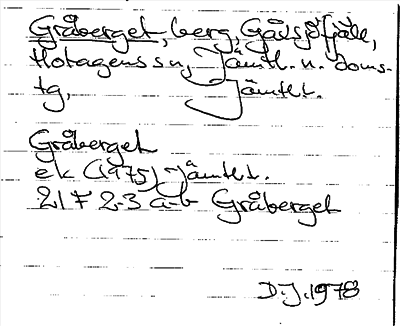 Gråberget, berg, Gålsjöfjäll,
Hotagens sn, Jämtl. n. doms-
tg, Jämtl.
Gråberget
ek (1975) Jämtl.
21 F 2-3 a-b Gråberget
D.J. 1978